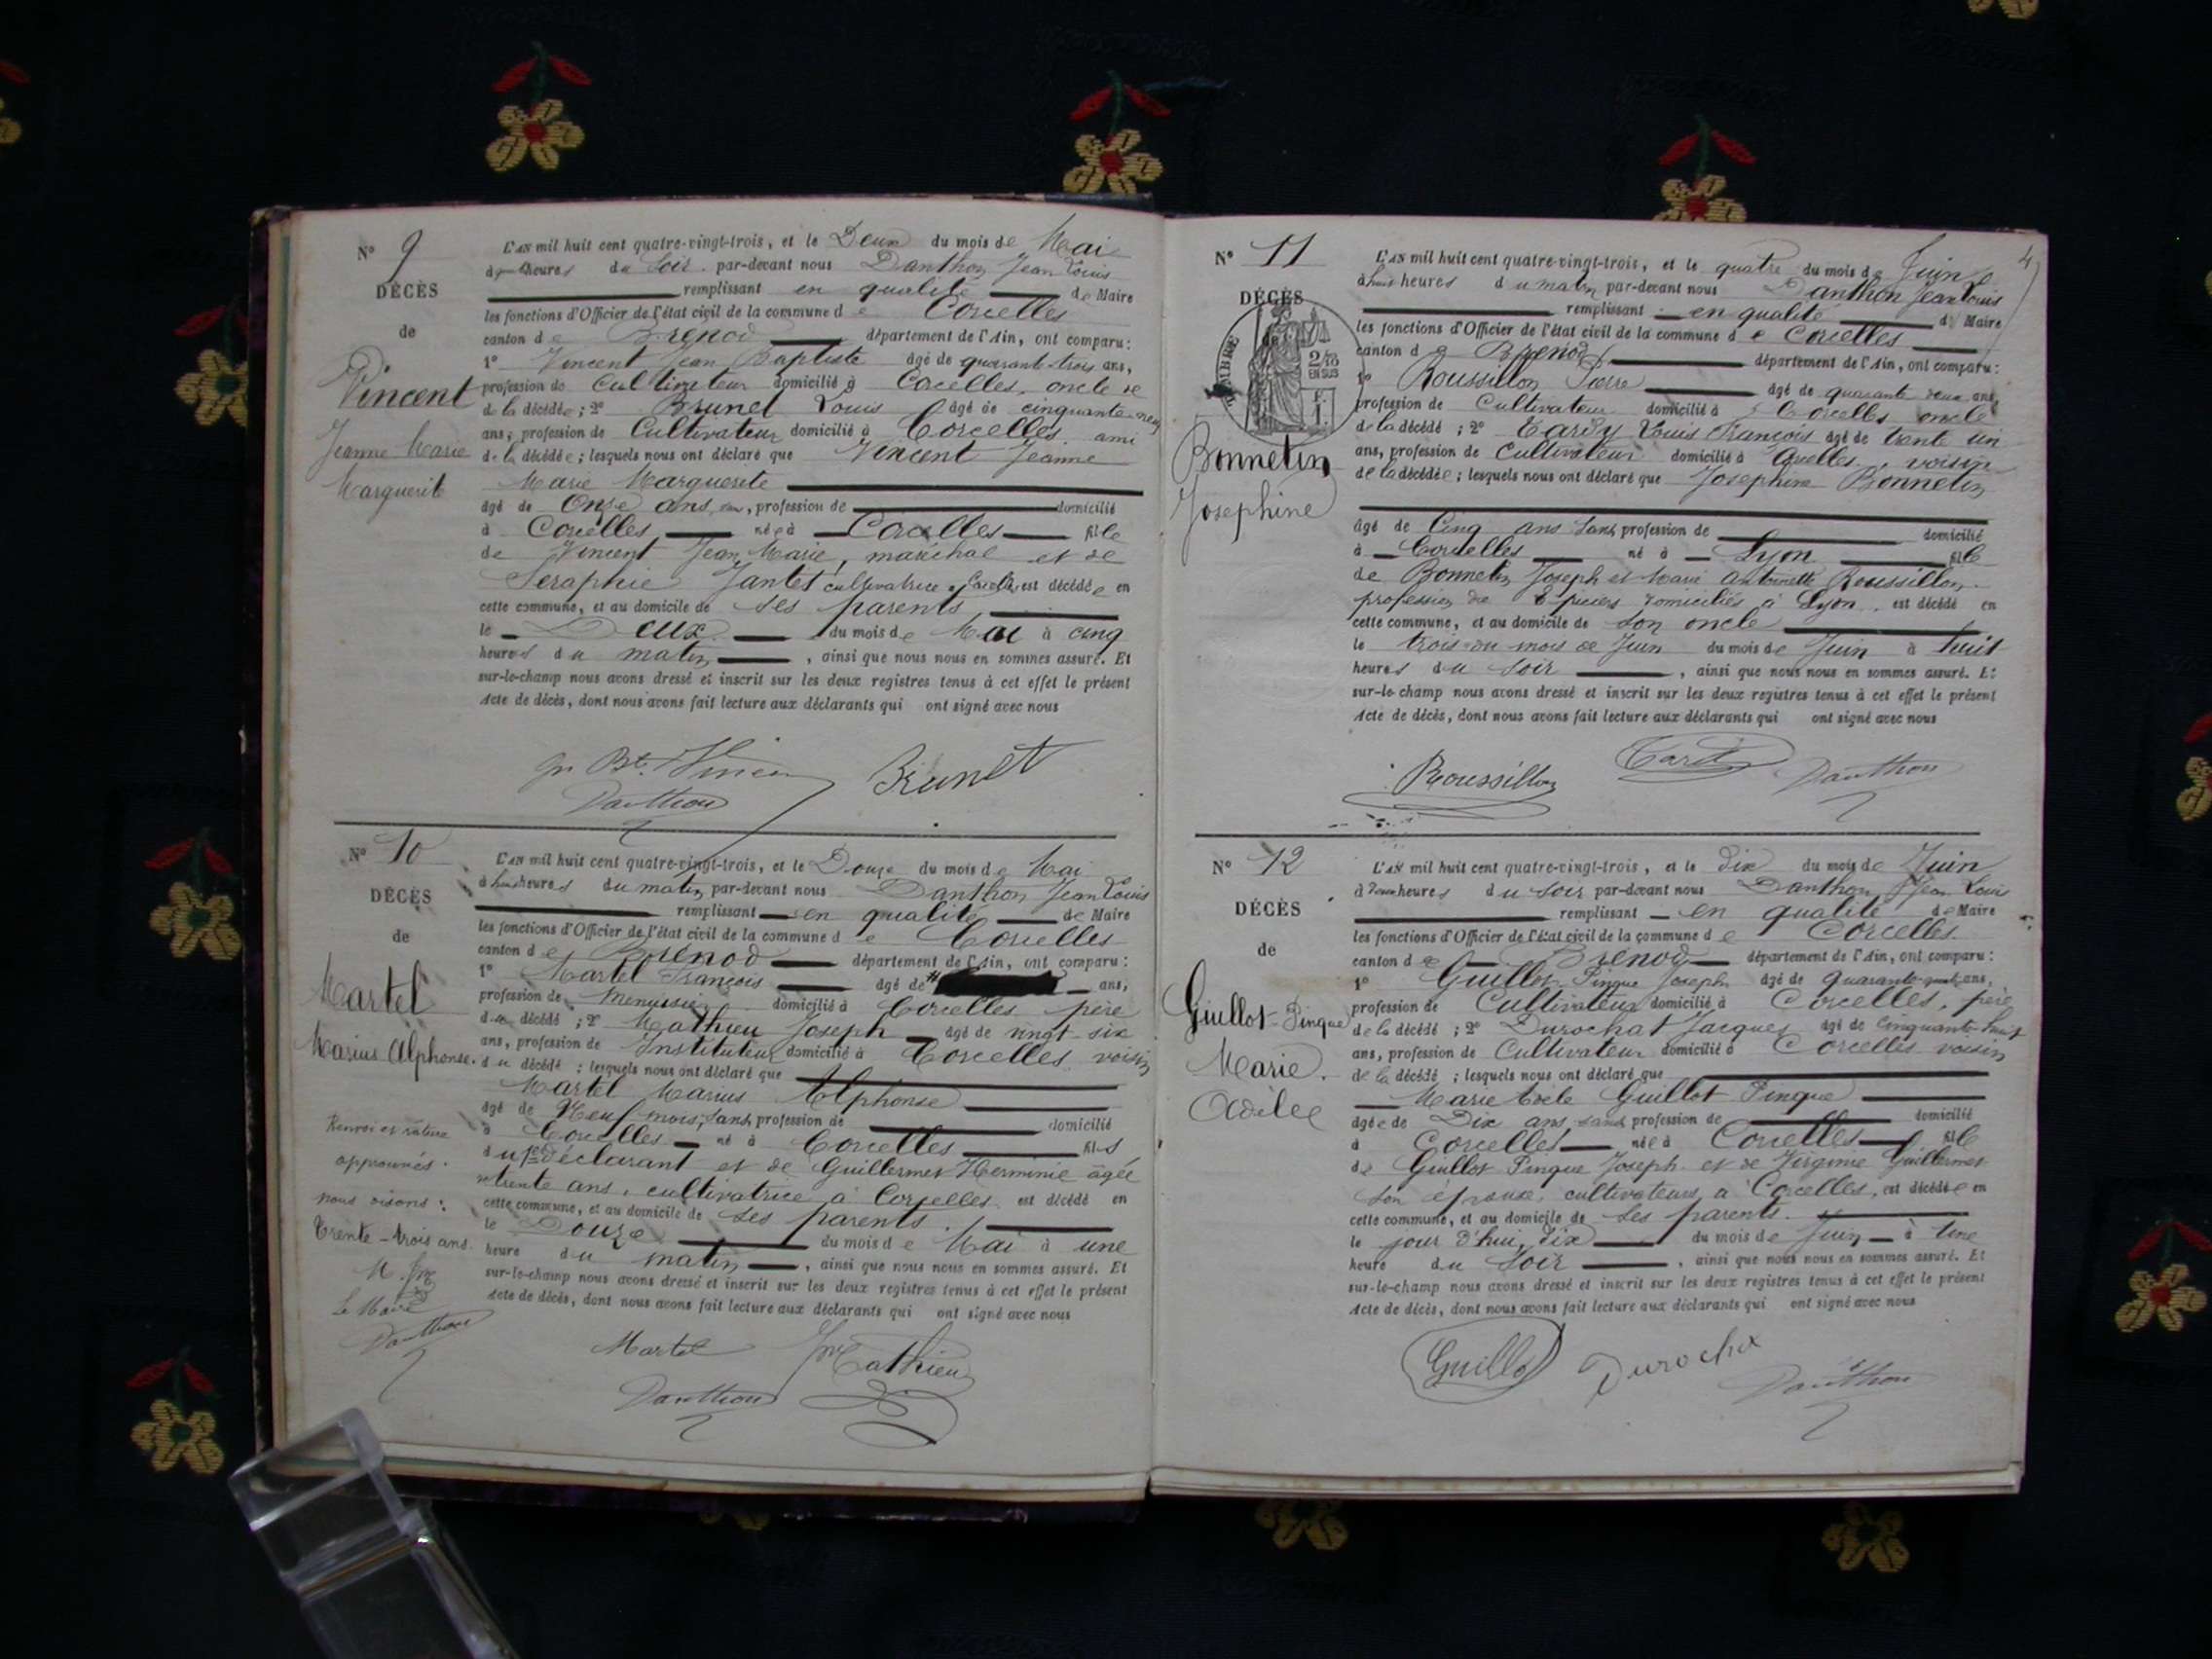 N° 9
DÉCÈS
de
Vincent
Jeanne Marie
Marguerite
L'AN mil huit cent quatre-vingt-trois, et le Deux du mois de Mai
heures du Soir par-devant nous Danthon Jean Louis
remplissant en qualité de Maire
les fonctions d'Officier de l'état civil de la commune de Corcelles
canton de Brenod département de l'Ain, ont comparu:
1° Vincent Jean Baptiste âgé de quarante-trois ans,
profession de Cultivateur domicilié à Corcelles, oncle
de la décédée; 2° Brunet Louis âgé de cinquante-neuf
ans, profession de Cultivateur domicilié à Corcelles ami
de la décédée; lesquels nous ont déclaré que Vincent Jeanne
Marie Marguerite
âgé de Onze ans, profession de domicilié
à Corcelles née à Corcelles fille
de Vincent Jean Marie, maréchal et de
Seraphie Jantet cultivatrice à Corcelles, est décédée en
cette commune, et au domicile de ses parents
le Deux du mois de Mai à cinq
heures du matin, ainsi que nous nous en sommes assuré. Et
sur-le-champ nous avons dressé et inscrit sur les deux registres tenus à cet effet le présent
Acte de décès, dont nous avons fait lecture aux déclarants qui ont signé avec nous
Jn Bte Vincent Brunet
Danthon
N° 10
DÉCÈS
de
Martel
Marius Alphonse.
Renvoi et rature
approuvés.
nous disons:
Trente-trois ans.
Le Maire
Danthon
L'AN mil huit cent quatre-vingt-trois, et le Douze du mois de Mai
heures du matin, par-devant nous Danthon Jean Louis
remplissant en qualité de Maire
les fonctions d'Officier de l'état civil de la commune de Corcelles
canton de Brenod département de l'Ain, ont comparu:
1° Martel François âgé de ans,
profession de Menuisier domicilié à Corcelles père
du décédé; 2° Mathieu Joseph âgé de vingt-six
ans, profession de Instituteur domicilié à Corcelles voisin
du décédé; lesquels nous ont déclaré que
Martel Marius Alphonse
âgé de Neuf mois, sans profession de domicilié
à Corcelles né à Corcelles fils
du 1er déclarant et de Guillermet Herminie âgée
trente ans, cultivatrice à Corcelles est décédé en
cette commune, et au domicile de ses parents.
le Douze du mois de Mai à une
heure du matin, ainsi que nous nous en sommes assuré. Et
sur-le-champ nous avons dressé et inscrit sur les deux registres tenus à cet effet le présent
Acte de décès, dont nous avons fait lecture aux déclarants qui ont signé avec nous
Martel Mathieu
Danthon
4
N° 11
DÉCÈS
de
TIMBRE
2/10
EN SUS
Bonnetin
Josephine
L'AN mil huit cent quatre-vingt-trois, et le quatre du mois de Juin
à huit heures du matin par-devant nous Danthon Jean Louis
remplissant en qualité de Maire
les fonctions d'Officier de l'état civil de la commune de Corcelles
canton de Brenod département de l'Ain, ont comparu:
1° Roussillon Pierre âgé de quarante deux ans,
profession de Cultivateur domicilié à Corcelles oncle
de la décédé; 2° Tardy Louis François âgé de trente un
ans, profession de Cultivateur domicilié à Corcelles, voisin
de la décédée; lesquels nous ont déclaré que Josephine Bonnetin
âgé de Cinq ans sans profession de domicilié
à Corcelles né à Lyon fille
de Bonnetin Joseph et Marie Antoinette Roussillon.
profession de Epiciers domiciliés à Lyon, est décédé en
cette commune, et au domicile de son oncle
le trois du mois de Juin du mois de Juin à huit
heures du soir, ainsi que nous nous en sommes assuré. Et
sur-le-champ nous avons dressé et inscrit sur les deux registres tenus à cet effet le présent
Acte de décès, dont nous avons fait lecture aux déclarants qui ont signé avec nous
Roussillon Tardy Danthon
N° 12
DÉCÈS
de
Guillot-Pingue
Marie
Adèle
L'AN mil huit cent quatre-vingt-trois, et le dix du mois de Juin
heures du soir par-devant nous Danthon Jean Louis
remplissant en qualité de Maire
les fonctions d'Officier de l'état civil de la commune de Corcelles
canton de Brenod département de l'Ain, ont comparu:
1° Guillot Pingue Joseph âgé de ans,
profession de Cultivateur domicilié à Corcelles, père
de la décédé; 2° Durochat Jacques âgé de Cinquante-huit
ans, profession de Cultivateur domicilié à Corcelles voisin
de la décédé; lesquels nous ont déclaré que
Marie Adèle Guillot Pingue
âgée de Dix ans, sans profession de domicilié
à Corcelles née à Corcelles fille
de Guillot Pingue Joseph et de Virginie Guillermet
son épouse, cultivateurs à Corcelles, est décédée en
cette commune, et au domicile de ses parents.
le jour d'hui, dix du mois de Juin à une
heure du soir, ainsi que nous nous en sommes assuré. Et
sur-le-champ nous avons dressé et inscrit sur les deux registres tenus à cet effet le présent
Acte de décès, dont nous avons fait lecture aux déclarants qui ont signé avec nous
Guillot Durochat Danthon